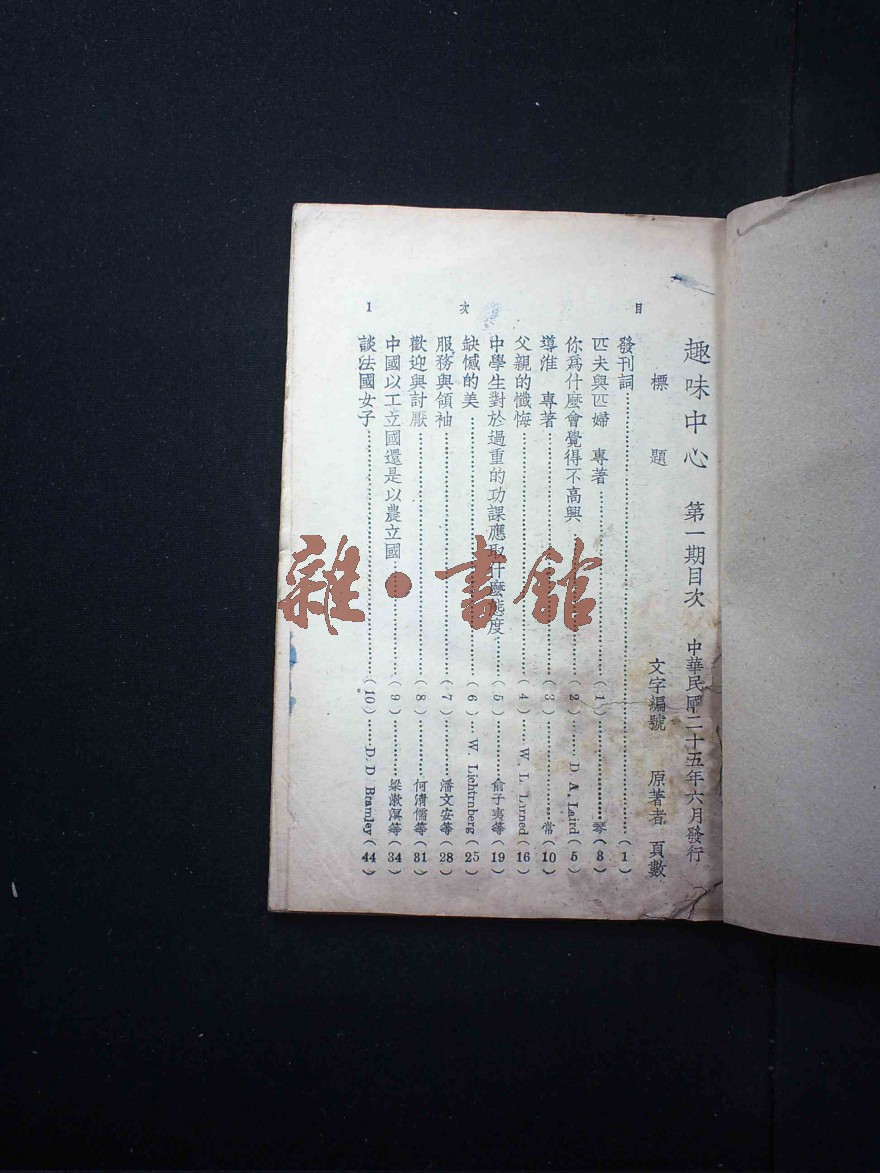 趣味中心　第一期目次　中華民國二十五年六月發行
標題　文字編號　原著者　頁數
目　次　1
發刊詞……(1)
匹夫與匹婦　專著……(1)……琴(3)
你為什麼會覺得不高興……(2)……D. A. Laird(5)
導淮　專著……(3)……常(10)
父親的懺悔……(4)……W. L. Larned(16)
中學生對於過重的功課應取什麼態度……(5)……俞子夷等(19)
缺憾的美……(6)……W. Lichtrnberg(25)
服務與領袖……(7)……潘文安等(28)
歡迎與討厭……(8)……何清儒等(31)
中國以工立國還是以農立國……(9)……梁漱溟等(34)
談法國女子……(10)……D. D Bramley(44)
雜·書館